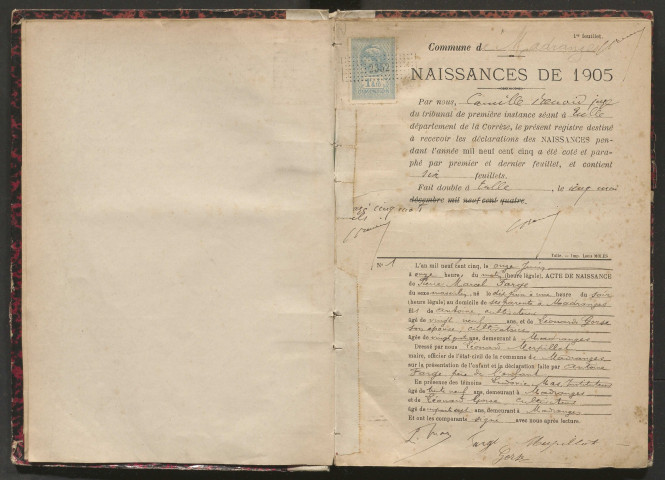 1er feuillet.
Commune de Madranges
NAISSANCES DE 1905
Par nous, Camille juge
du tribunal de première instance séant à Tulle
département de la Corrèze, le présent registre destiné
à recevoir les déclarations des NAISSANCES pen-
dant l'année mil neuf cent cinq a été coté et para-
phé par premier et dernier feuillet, et contient
six feuillets.
Fait double à Tulle, le cinq mai
décembre mil neuf cent quatre.
Tulle. — Imp. Louis MOLES
N° 1
L'an mil neuf cent cinq, le onze juin
à onze heures du matin (heure légale), ACTE DE NAISSANCE
de Pierre Marcel Farge
du sexe masculin, né le dix juin à une heure du soir
(heure légale) au domicile de ses parents à Madranges
fils de Antoine cultivateur
âgé de vingt neuf ans, et de Léonarde Gorse
son épouse, cultivatrice
âgée de vingt ans, demeurant à Madranges
Dressé par nous Léonard Merpillat
maire, officier de l'état civil de la commune de Madranges
sur la présentation de l'enfant et la déclaration faite par Antoine
Farge père de l'enfant
En présence des témoins Ludovic Mas, instituteur
âgé de trente neuf ans, demeurant à Madranges
et Léonard Gorse, cultivateur
âgé de cinquante sept ans, demeurant à Madranges
Et ont les comparants signé avec nous après lecture.
L. Mas Farge Merpillat
Gorse